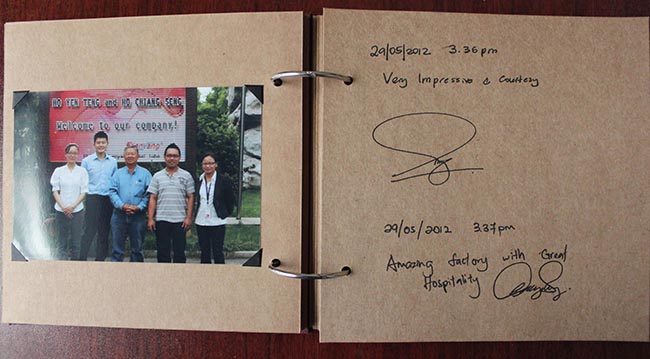 HO YEN TENG and HO CHIANG SENG
Welcome to our company!
29/05/2012 3.36pm
Very Impressive & Courtesy
29/05/2012 3.37pm
Amazing factory with Great
Hospitality